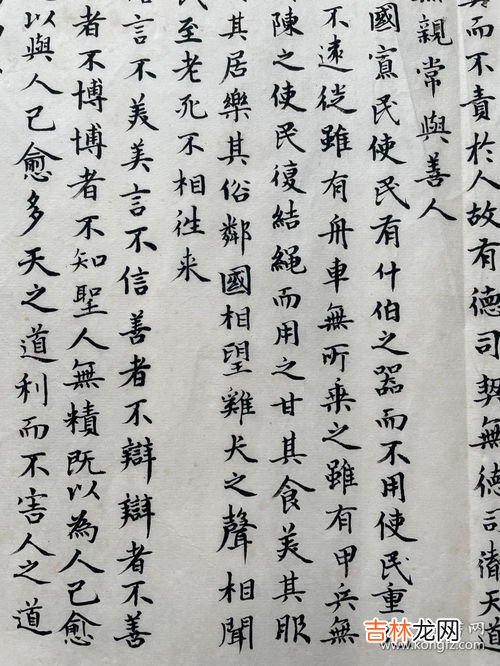 而不責於人故有德司契無德司徹天道
無親常與善人
國寡民使民有什伯之器而不用使民重
不遠徙雖有舟車無所乗之雖有甲兵無
陳之使民復結繩而用之甘其食美其服
其居樂其俗鄰國相望雞犬之聲相聞
民至老死不相往来
言不美美言不信善者不辯辯者不善
者不博博者不知聖人無積既以為人已愈
以與人已愈多天之道利而不害人之道
吉林龙网